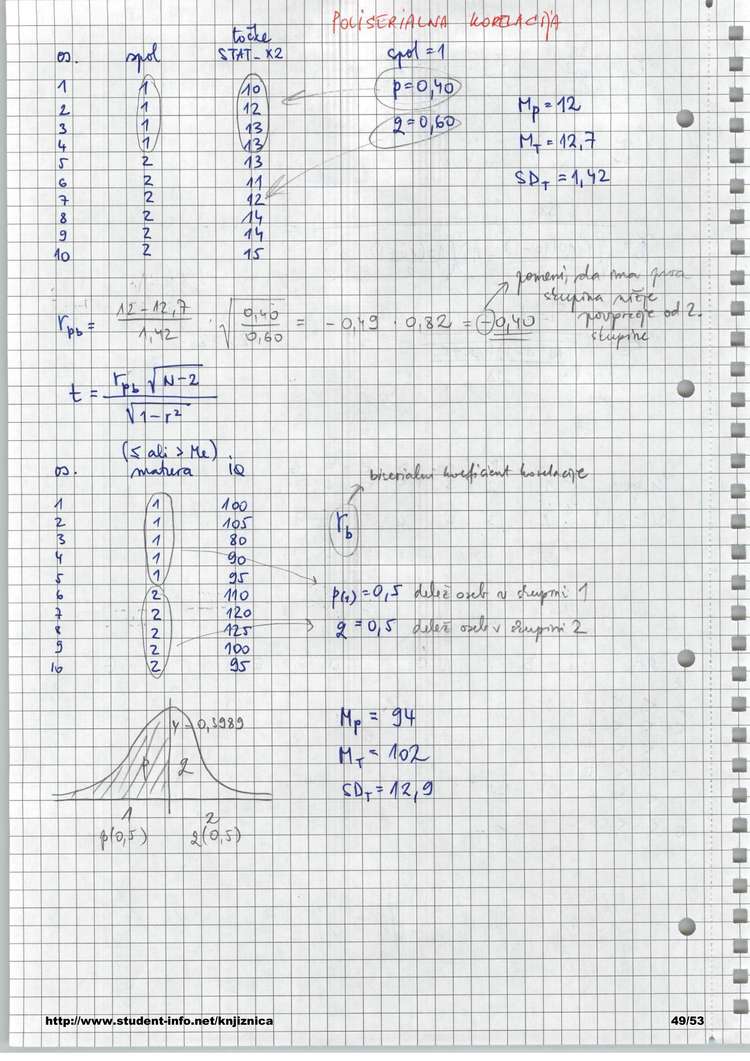 POLISERIALNA KORELACIJA
točke
os. spol STAT_X2 spol = 1
1 1 10 p = 0,40
2 1 12
3 1 13 q = 0,60
4 1 13
5 2 13
6 2 11
7 2 12
8 2 14
9 2 14
10 2 15
Mp = 12
MT = 12,7
SDT = 1,42
rpb = 12 - 12,7 / 1,42 · √ 0,40 / 0,60 = - 0,49 · 0,82 = - 0,40
pomeni, da ima prva
skupina nižje
povprečje od 2.
skupine
t = rpb √N-2 / √1-r²
(≤ ali > Me)
os. matura IQ
1 1 100
2 1 105
3 1 80
4 1 90
5 1 95
6 2 110
7 2 120
8 2 125
9 2 100
10 2 95
biserialni koeficient korelacije
rb
p(1) = 0,5 delež oseb v skupini 1
q = 0,5 delež oseb v skupini 2
y = 0,3989
p q
1 2
p(0,5) q(0,5)
Mp = 94
MT = 102
SDT = 12,9
http://www.student-info.net/knjiznica 49/53